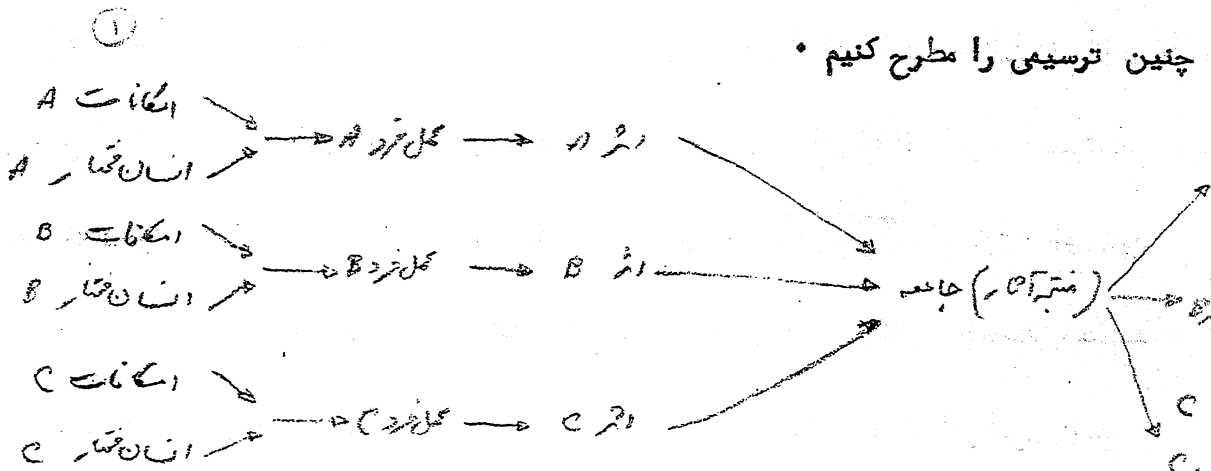 ۱
چنین ترسیمی را مطرح کنیم .
امکانات A
انسان مختار A
عمل فرد A
اثر A
امکانات B
انسان مختار B
عمل فرد B
اثر B
امکانات C
انسان مختار C
عمل فرد C
اثر C
جامعه (نتیجه آثار)
B
C
C